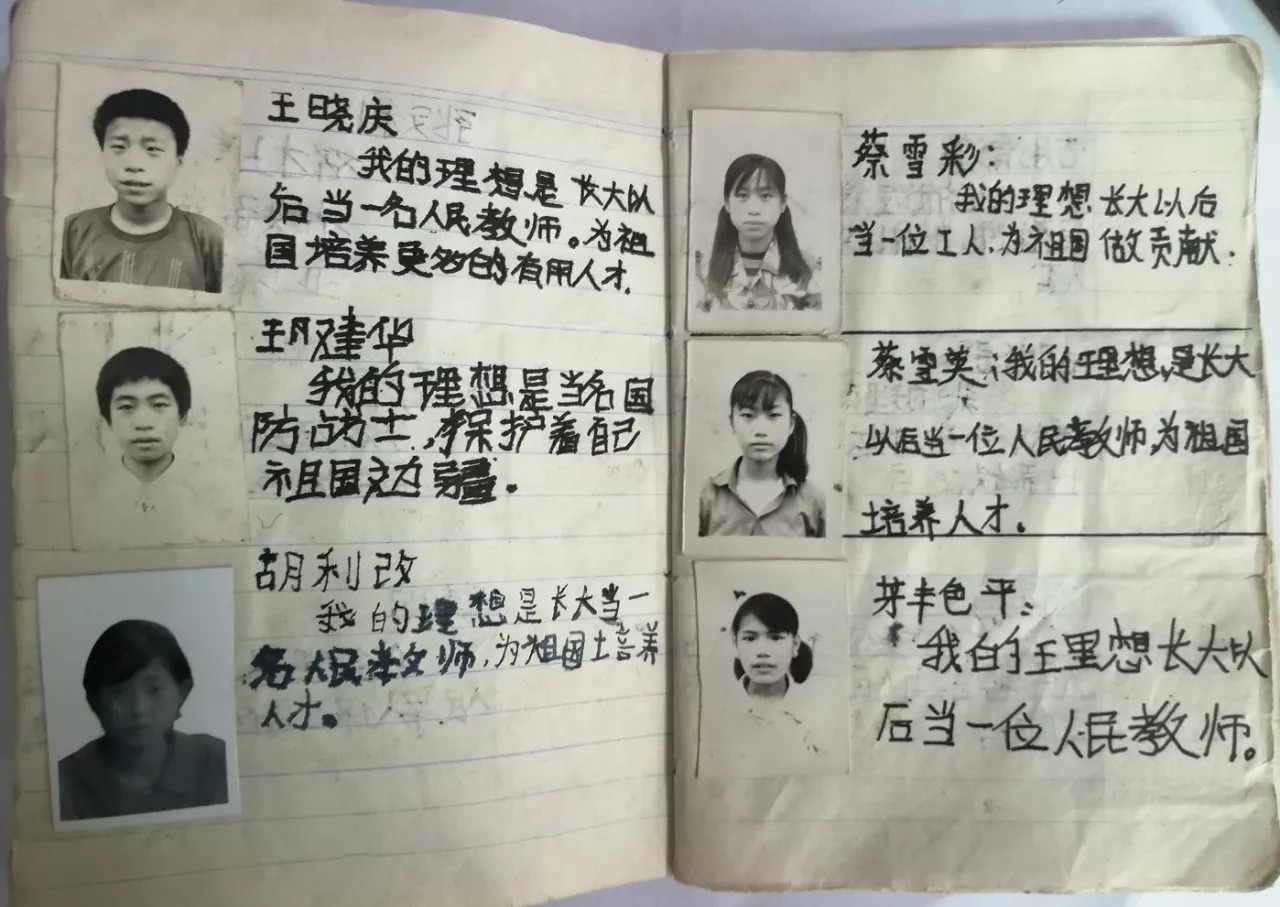 王晓庆
我的理想是长大以
后当一名人民教师。为祖
国培养更多的有用人才.
建华
我的理想是当名国
防战士,保护着自己
祖国边疆.
胡利改
我的理想是长大当一
名人民教师,为祖国培养
人才。
蔡雪彩:
我的理想长大以后
当一位工人,为祖国做贡献.
蔡雪英:我的理想,是长大
以后当一位人民教师,为祖国
培养人才。
艳平:
我的理想长大以
后当一位人民教师。